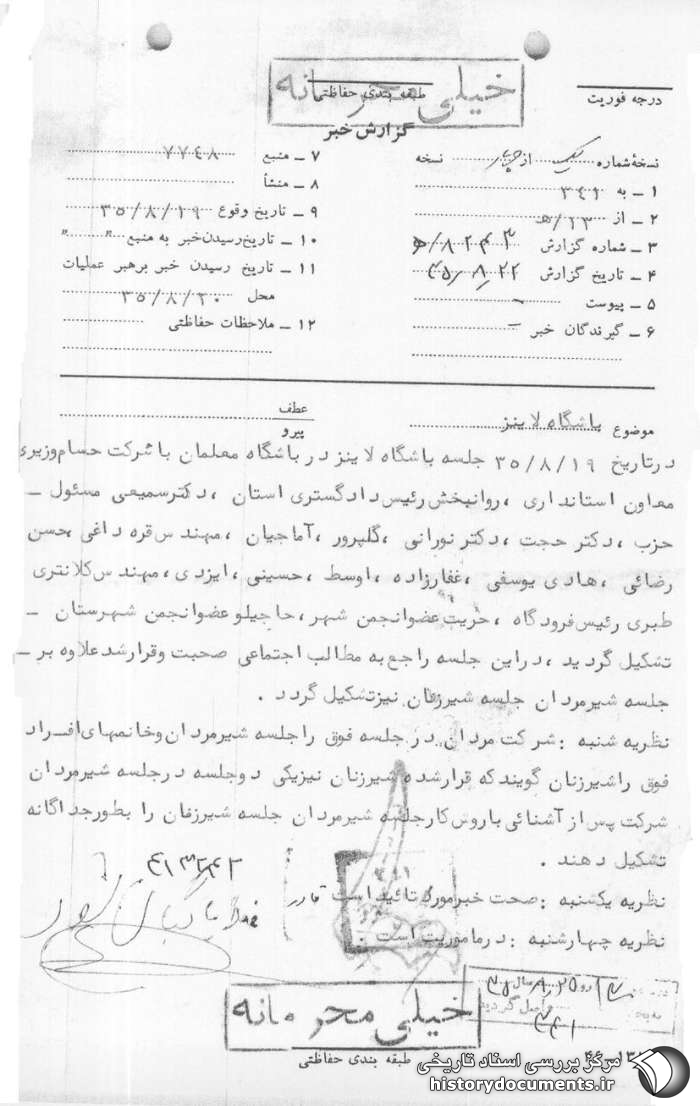 خیلی محرمانه
طبقه بندی حفاظتی
درجه فوریت
گزارش خبر
نسخهٔ شماره یک از چهار نسخه
۱ ـ به ۳۴۱
۲ ـ از ۱۳/ه
۳ ـ شماره گزارش ۸۲۴۳/ه
۴ ـ تاریخ گزارش ۴۵/۸/۲۲
۵ ـ پیوست ـ
۶ ـ گیرندگان خبر ـ
۷ ـ منبع ۷۷۴۸
۸ ـ منشأ
۹ ـ تاریخ وقوع ۳۵/۸/۱۹
۱۰ ـ تاریخ رسیدن خبر به منبع " "
۱۱ ـ تاریخ رسیدن خبر برهبر عملیات
محل ۳۵/۸/۲۰
۱۲ ـ ملاحظات حفاظتی
موضوع باشگاه لاینز
عطف
پیرو
درتاریخ ۳۵/۸/۱۹ جلسه باشگاه لاینز در باشگاه معلمان با شرکت حسام وزیری
معاون استانداری ، روانبخش رئیس دادگستری استان ، دکتر سمیعی مسئول ـ
حزب ، دکتر حجت ، دکتر نورانی ، گلپرور ، آماجیان ، مهندس قره داغی ، حسن
رضائی ، هادی یوسفی ، غفارزاده ، اوسط ، حسینی ، ایزدی ، مهندس کلانتری
طبری رئیس فرودگاه ، حریت عضو انجمن شهر ، حاجیلو عضو انجمن شهرستان ـ
تشکیل گردید ، در این جلسه راجع به مطالب اجتماعی صحبت وقرار شد علاوه بر ـ
جلسه شیرمردان جلسه شیرزنان نیز تشکیل گردد .
نظریه شنبه : شرکت مردان در جلسه فوق را جلسه شیرمردان وخانمهای افراد
فوق را شیرزنان گویند که قرار شده شیرزنان نیز یکی دوجلسه درجلسه شیرمردان
شرکت پس از آشنائی باروش کار جلسه شیرمردان جلسه شیرزنان را بطور جداگانه
تشکیل دهند .
نظریه یکشنبه : صحت خبر مورد تائید است
نظریه چهارشنبه : درماموریت است .
خیلی محرمانه
طبقه بندی حفاظتی
مرکز بررسی اسناد تاریخی
historydocuments.ir